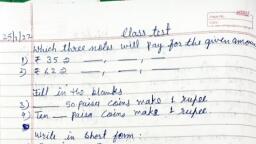 Class test
25/1/22
Which three notes will pay for the given amount
1) ₹ 35 = __, __, __
2) ₹ 62 = __, __, __
Fill in the blanks
3) __ 50 paisa coins make 1 rupee
4) Ten __ paisa coins make 1 rupee.
Write in short form :